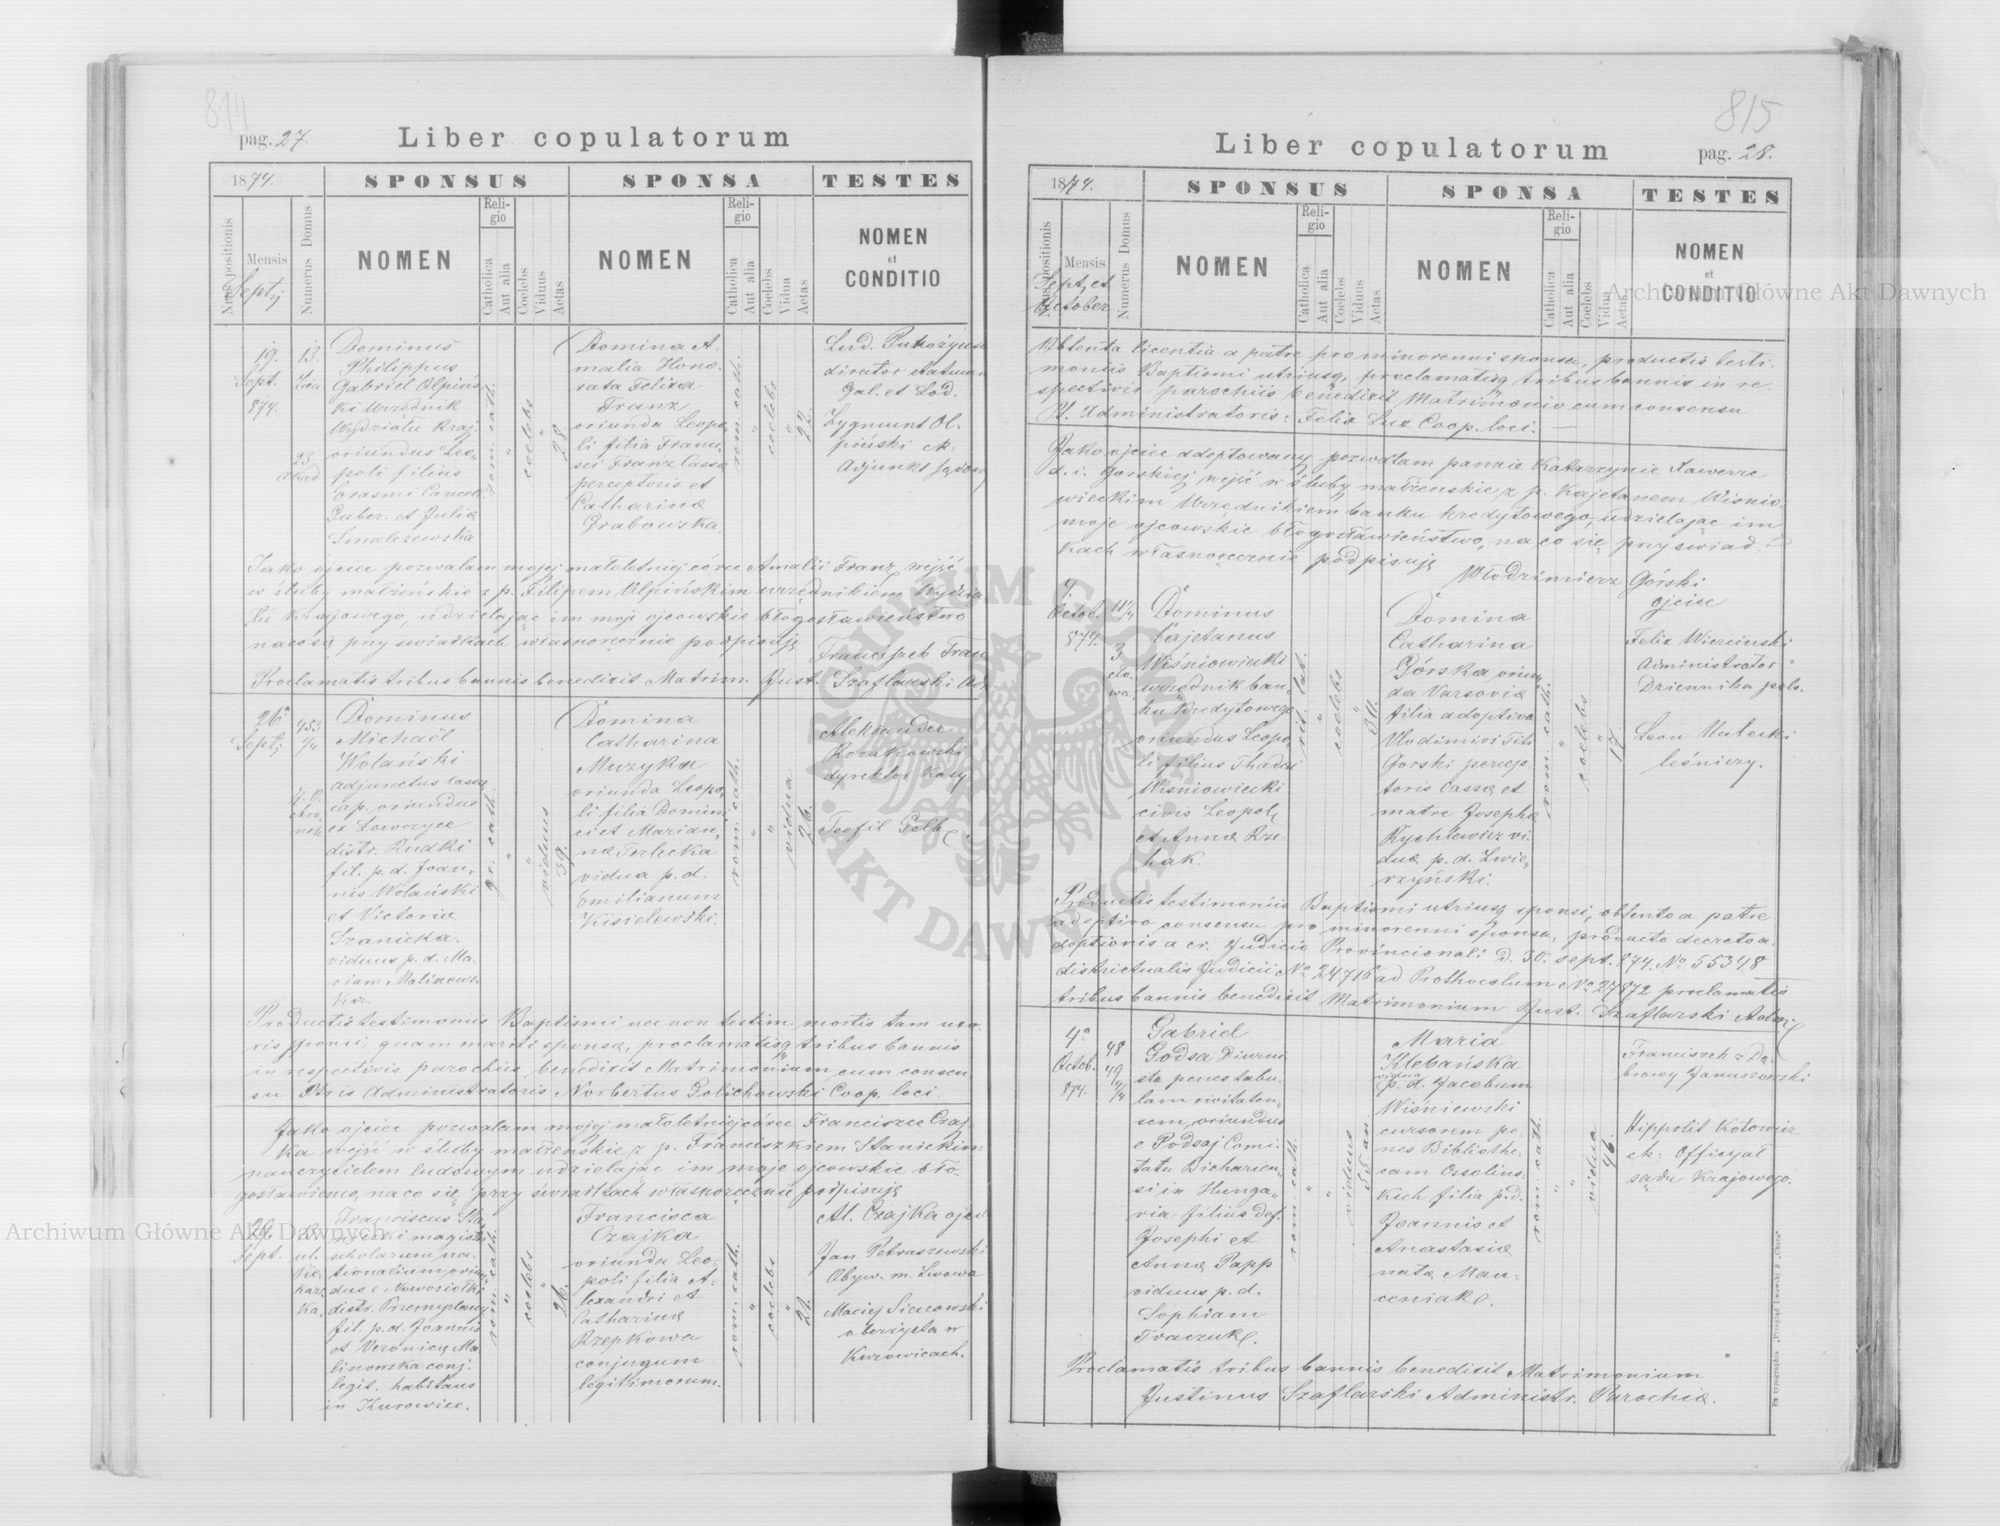 814
pag. 27.
Liber copulatorum
1874.
SPONSUS
SPONSA
TESTES
Nrus positionis
Mensis
Septj
Numerus Domus
NOMEN
Religio
Catholica
Aut alia
Coelebs
Viduus
Aetas
NOMEN
Religio
Catholica
Aut alia
Coelebs
Vidua
Aetas
NOMEN
et
CONDITIO
19.
Sept.
874.
13.
23
Dominus
Philippus
Gabriel Olpińs
ki Urzędnik
Wydziału Kraj.
oriundus Leo
poli filius
Erasmi Concell.
Guber. et Juliæ
Smalczewska
rom. cath.
coelebs
28
Domina A-
malia Hono-
rata Felixa
Franz
oriunda Leopo
li filia Franci
sci Franz Cassæ
perceptoris et
Catharinæ
Grabowska.
rom. cath.
coelebs
22.
Lud.
director
Gal. et Lod.
Zygmunt Ol-
piński ck.
Adjunkt sądow
Jako ojciec pozwalam mojej małoletniej córce Amalii Franz wejść
w śluby małżeńskie z p. Filipem Olpińskim urzędnikiem Wydzia
łu Krajowego, udzielając im moje ojcowskie błogosławieństwo
na co się przy świadkach własnoręcznie podpisuję
Franciszek Franz
Proclamatis tribus bannis benedixit Matrim. Just. Szaflarski Adm
26a
Septj
453
/4
Dominus
Michaël
Wolański
adjunctus cassæ
cap. oriundus
ex Łowczyce
distr. Rudki
fil. p. d. Joan-
nis Wolański
et Victoriæ
Szanicka.
viduus p. d. Ma-
riam Malinows-
ka.
gr. cath.
viduus
39.
Domina
Catharina
Muzyka
oriunda Leopo-
li filia Domini
ci et Marian-
næ Terlecka
vidua p. d.
Emilianum
Kisielewski.
rom. cath.
vidua
26.
Aleksander
dyrektor Kasy
Teofil
Productis testimoniis Baptismi nec non testim. mortis tam uxo-
ris sponsi, quam mariti sponsæ, proclamatisq tribus bannis
in respectivis parochiis benedixit Matrimonium cum consen
su Ptris Administratoris Norbertus Golichowski Coop. loci.
Jako ojciec pozwalam mojej małoletniej córce Franciszce Czaj
ka wejść w śluby małżeńskie z p. Franciszkiem Stanickim
nauczycielem ludowym udzielając im moje ojcowskie bło-
gosławieńs, na co się przy świadkach własnoręcznie podpisuję
29.
Sept.
8.
ul.
Pie-
kars
ka.
Franciscus Sta
nicki magister
scholarum na-
tionalium oriun
dus e Nowosiółki
distr. Przemyślany
fil. p. d. Joannis
et Veronicæ Ma
linowska conj.
legit. habitans
in Kurowice.
rom. cath.
coelebs
26.
Francisca
Czajka
oriunda Leo-
poli filia A-
lexandri et
Catharinæ
Rzepkowa
conjugum
legitimorum.
rom. cath.
coelebs
22.
Al. Czajka ojciec
Jan Petraszewski
Obyw. m. Lwowa
Maciej
oberżysta w
Kurowicach.
815
Liber copulatorum
pag. 28.
1874.
SPONSUS
SPONSA
TESTES
Nrus positionis
Mensis
Septj et
October
Numerus Domus
NOMEN
Religio
Catholica
Aut alia
Coelebs
Viduus
Aetas
NOMEN
Religio
Catholica
Aut alia
Coelebs
Vidua
Aetas
NOMEN
et
CONDITIO
Obtenta licentia a patre pro minorenni sponsa, productis testi-
moniis Baptismi utriusq, proclamatisq tribus bannis in re-
spectivis parochiis benedixit Matrimonio cum consensu
Pt. Administratoris: Felix Lux Coop. loci. —
Jako ojciec adoptowany pozwalam pannie Katarzynie Xawerze
d. i. Gorskiej wejść w śluby małżeńskie z p. Kajetanem Wiśnio
wieckim Urzędnikiem banku kredytowego, udzielając im
moje ojcowskie błogosławieństwo, na co się przy świad-
kach własnoręcznie podpisuję
Włodzimierz Górski
ojciec
4.
Octob.
874.
11/4
3
Dominus
Cajetanus
Wiśniowiecki
urzędnik ban-
ku kredytowego
oriundus Leopo-
li filius Thadei
Wiśniowiecki
civis Leopol.
et Annæ Rze-
hak.
rit. lat.
coelebs
Domina
Catharina
Górska oriun
da Varsoviæ
filia adoptiva
Vlodimiri Titi
Gorski percep-
toris Cassæ et
matre Josepha
Rychlewicz vi-
dua p. d. Zwie-
rzyński.
rom. cath.
coelebs
17
Felix Wierciński
Administrator
Dziennika pols.
Leon Małecki
leśniczy.
Productis testimoniis Baptismi utriusq sponsi, obtento a patre
adoptivo consensu pro minorenni sponsa, producto decreto a-
doptionis a cr. Judicio Provincionali d. 30. sept. 874. No 55348
districtualis Judicii No 24716 ad Prothocolum No 27872 proclamatis
tribus bannis benedixit Matrimonium Just. Szaflarski Adm.
4a
Octob.
874.
48
49
/4
Gabriel
Godsa Diurni
sta penes tabu-
lam civitaten-
sem, oriundus
e Podsaj Comi-
tatu Biharien-
si in Hunga-
ria filius def.
Josephi et
Annæ Papp
viduus p. d.
Sophiam
Traczuk.
rom. cath
viduus
55. an.
Maria
Klebańska
vidua
p. d. Jacobum
Wiśniewski
cursorem pe-
nes Bibliothe-
cam Ossolins-
kich filia p. d.
Joannis et
Anastasiæ
natæ Mau-
ceniak.
rom. cath.
vidua
46.
Franciszek z Dą-
browy Januszowski
Hippolit Kotowicz
ck. Officyał
sądu Krajowego.
Proclamatis tribus bannis benedixit Matrimonium
Justinus Szaflarski Administr. Parochiæ.
Archiwum Główne Akt Dawnych
Archiwum Główne Akt Dawnych
ARCHIWUM GŁÓWNE AKT DAWNYCH